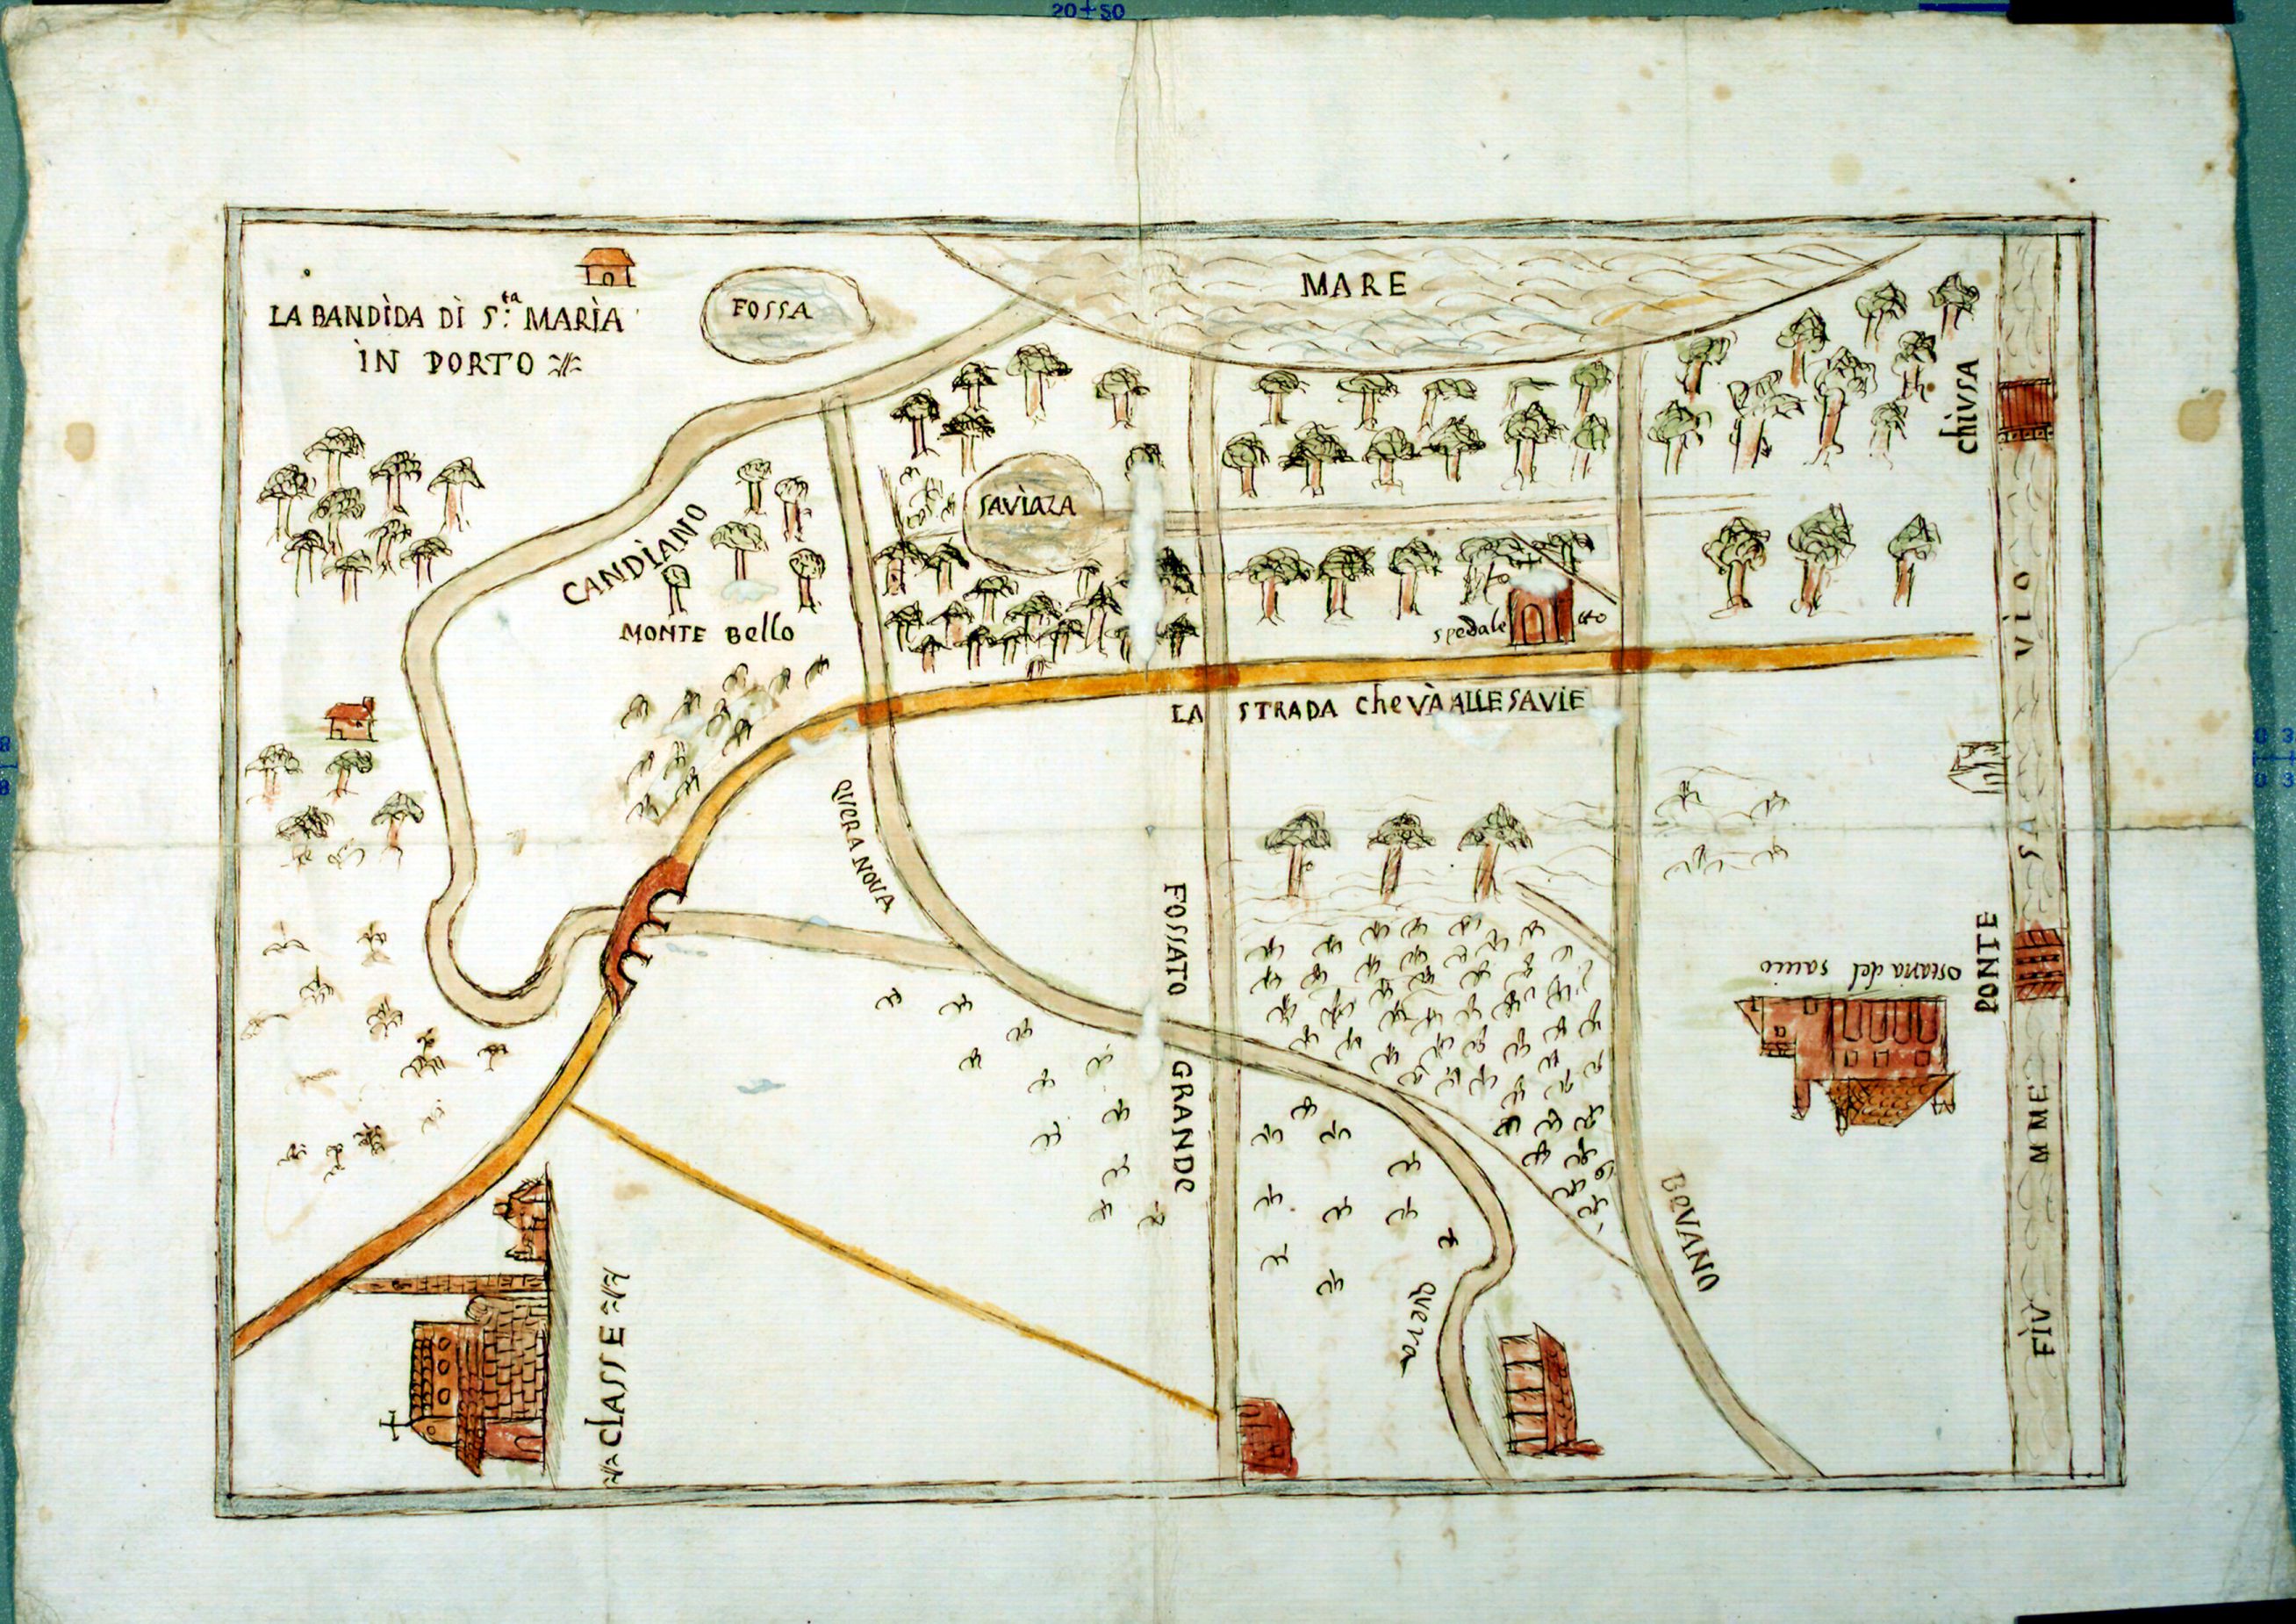 20+50
MARE
FOSSA
LA BANDÌDA DÌ S.ta MARÌA
ÌN PORTO
CHIVSA
SAVÌAZA
CANDÌANO
MONTE Bello
spedale
LA STRADA che VÀ ALLE SAVIE
QVERA NOVA
FOSSATO GRANDE
PONTE
ostaria del sauio
FÌVMME SAVIO
BEVANO
Quera
CLASSE